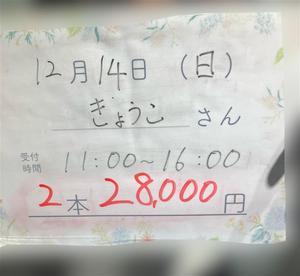 12月14日（日）
きょうこ さん
受付時間 11:00～16:00
2本 28,000円